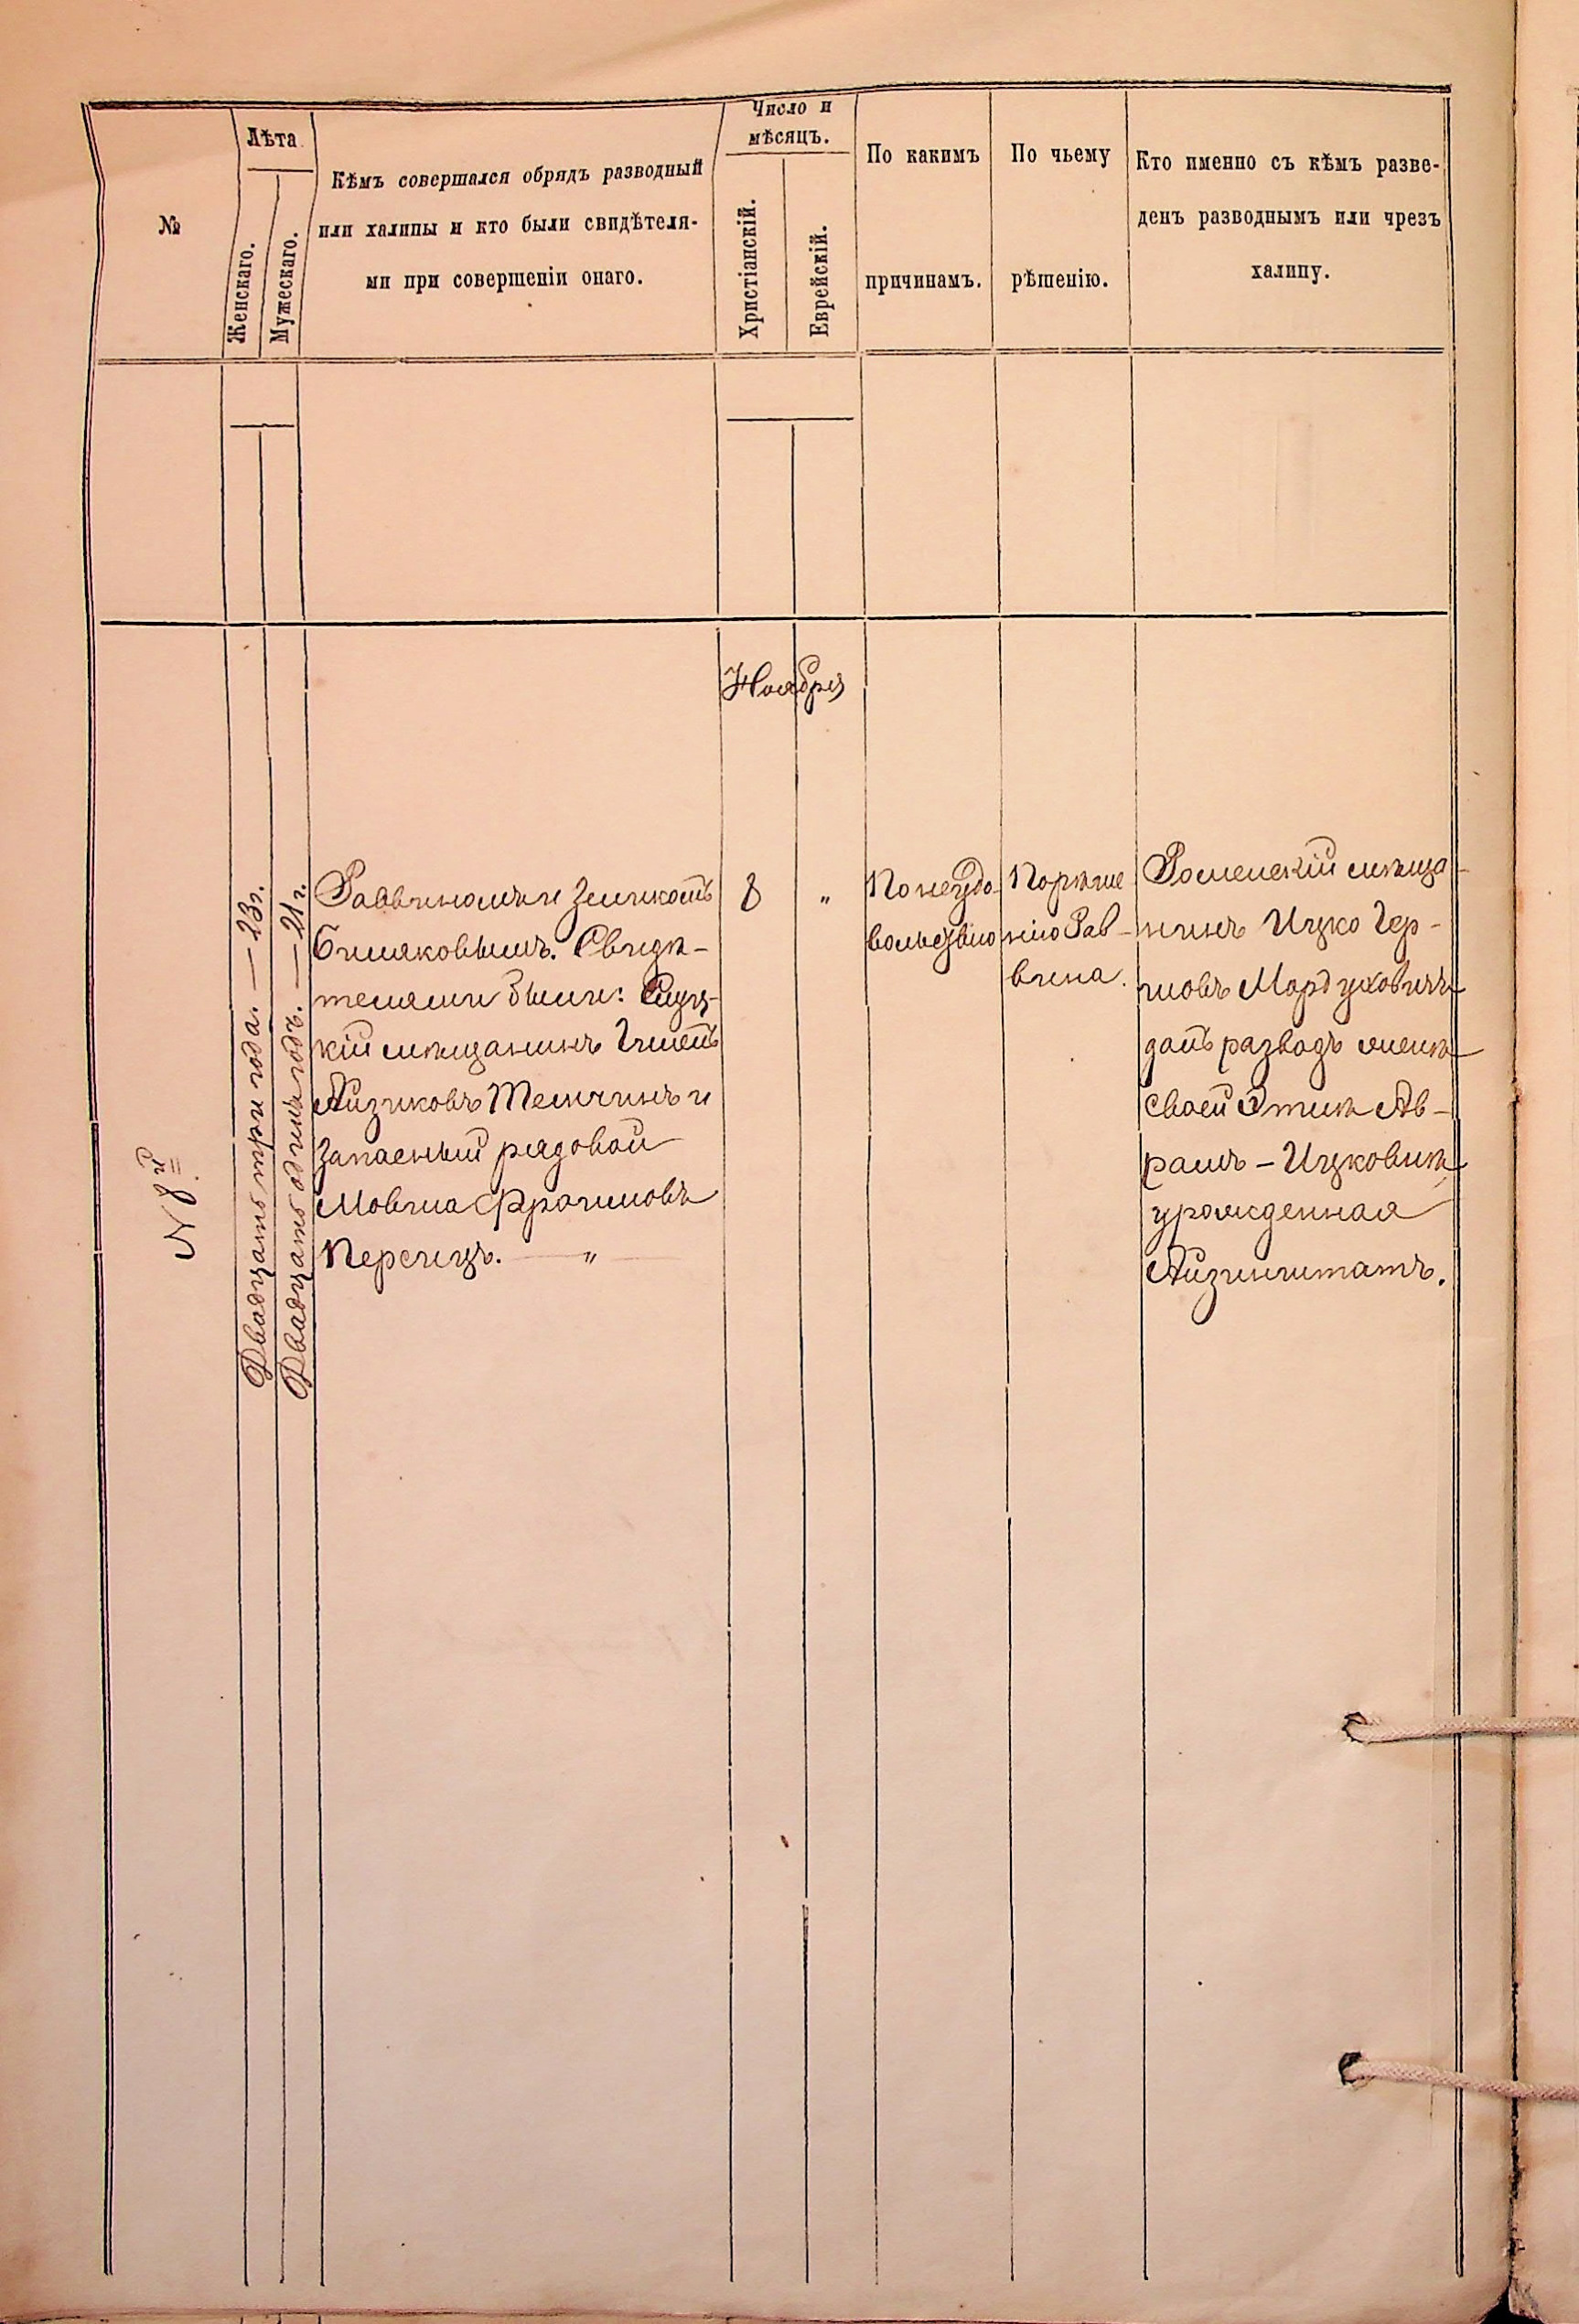 №
Лѣта
Женскаго.
Мужескаго.
Кѣмъ совершался обрядъ разводный
или халицы и кто были свидѣтеля-
ми при совершеніи онаго.
Число и
мѣсяцъ.
Христіанскій.
Еврейскій.
По какимъ
причинамъ.
По чьему
рѣшенію.
Кто именно съ кѣмъ разве-
денъ разводнымъ или чрезъ
халицу.
Ноября
N 8й
Двадцать три года. — 23 г.
Двадцать одинъ годъ. — 21 г.
Раввиномъ
Свидѣ-
телями были: Слуц-
кій мѣщанинъ
Айзиковъ Темчинъ и
Запасный рядовой
Мовша Фроимовъ
Перецъ. — "
8
"
По неудо-
вольствію
По рѣше
нію Рав-
вина.
Роменскій мѣща-
нинъ Ицко Гер-
шовъ Мордуховичъ
далъ разводъ женѣ
своей Этлѣ Ав-
рамъ-Ицковнѣ
урожденная
Айзинштатъ.